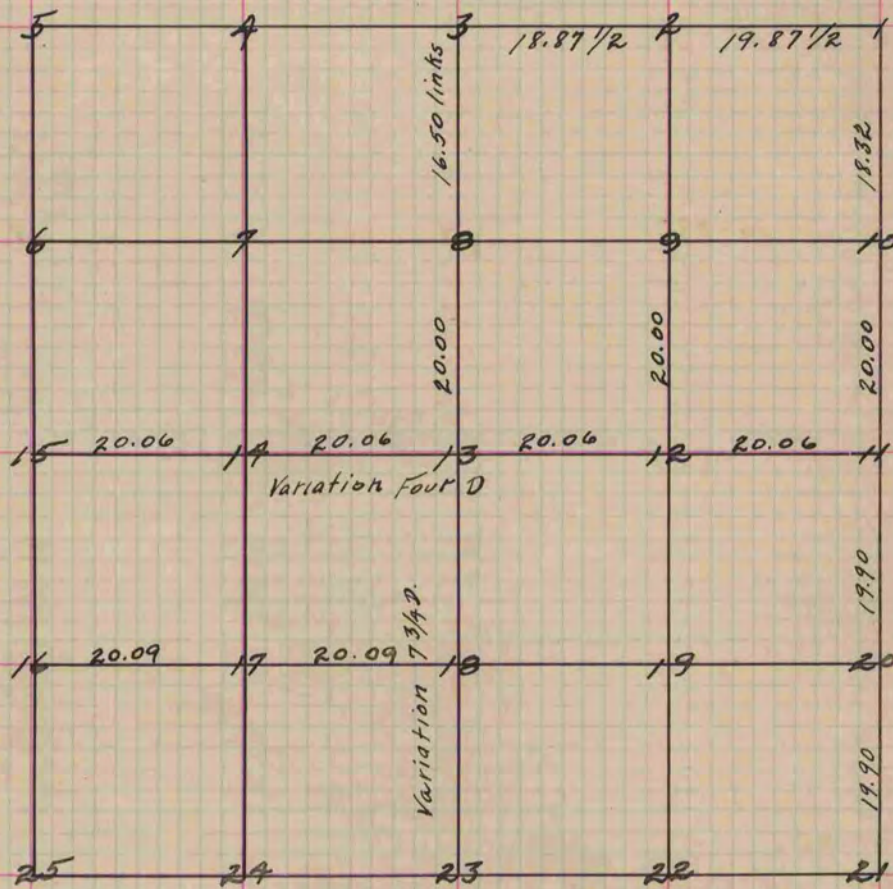 5 4 3 2 1
18.87 1/2 19.87 1/2
16.50 links
18.32
6 7 8 9 10
20.00 20.00 20.00
15 20.06 14 20.06 13 20.06 12 20.06 11
Variation Four D
19.90
Variation 7 3/4 D.
16 20.09 17 20.09 18 19 20
19.90
25 24 23 22 21